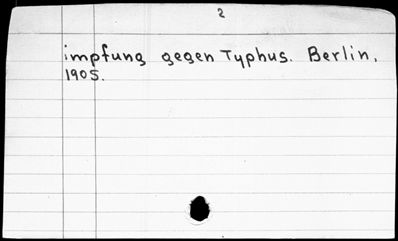 2
impfung gegen Typhus. Berlin,
1905.